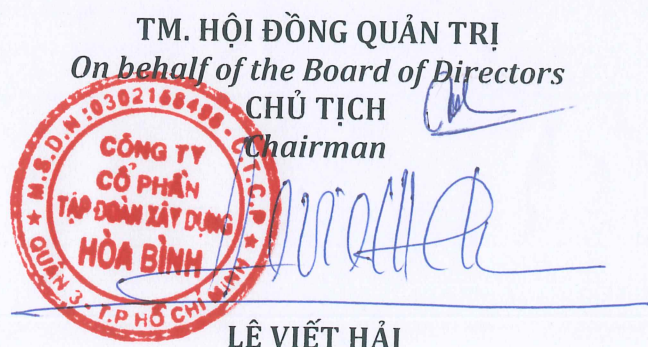 TM. HỘI ĐỒNG QUẢN TRỊ
On behalf of the Board of Directors
CHỦ TỊCH
Chairman
M.S.D.N:0302158498 - C.T.C.P
CÔNG TY
CỔ PHẦN
TẬP ĐOÀN XÂY DỰNG
HÒA BÌNH
QUẬN 3 - T.P HỒ CHÍ MINH
LÊ VIẾT HẢI